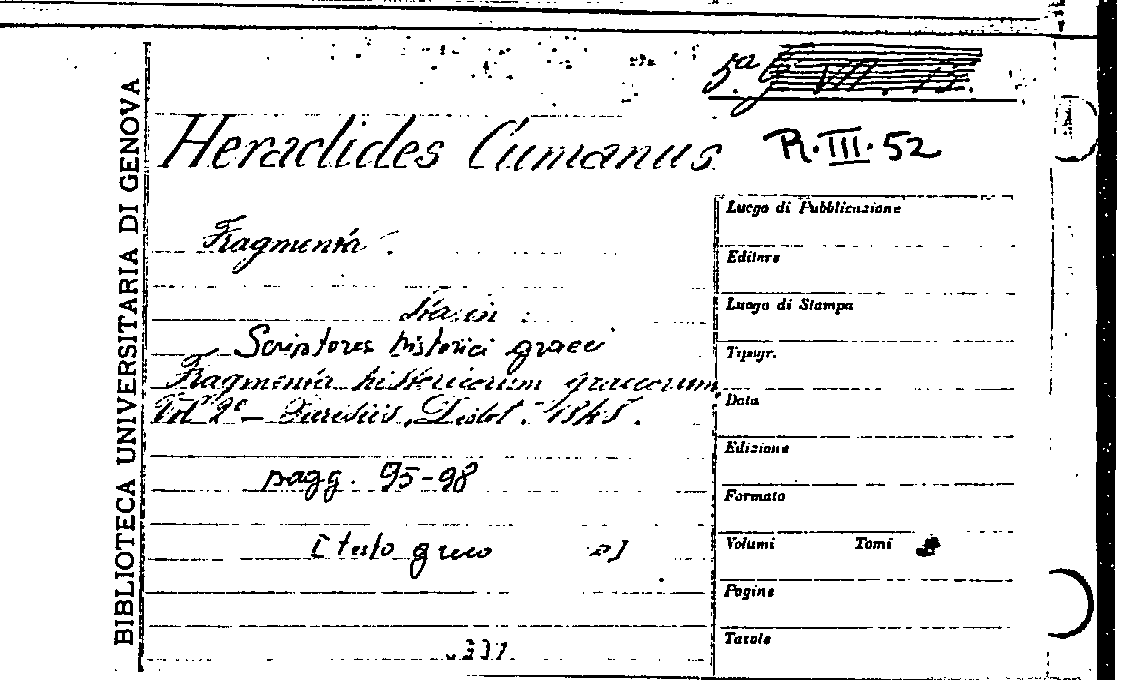 BIBLIOTECA UNIVERSITARIA DI GENOVA
5.a
Heraclides Cumanus
R.III.52
Fragmenta.
Sta in:
Scriptores historici graeci
Fragmenta historicorum graecorum
Vol 2° - Parisiis, Didot. 1848.
pagg. 95-98
[testo greco
337
Luogo di Pubblicazione
Editore
Luogo di Stampa
Tipogr.
Data
Edizione
Formato
Volumi Tomi
Pagine
Tavole